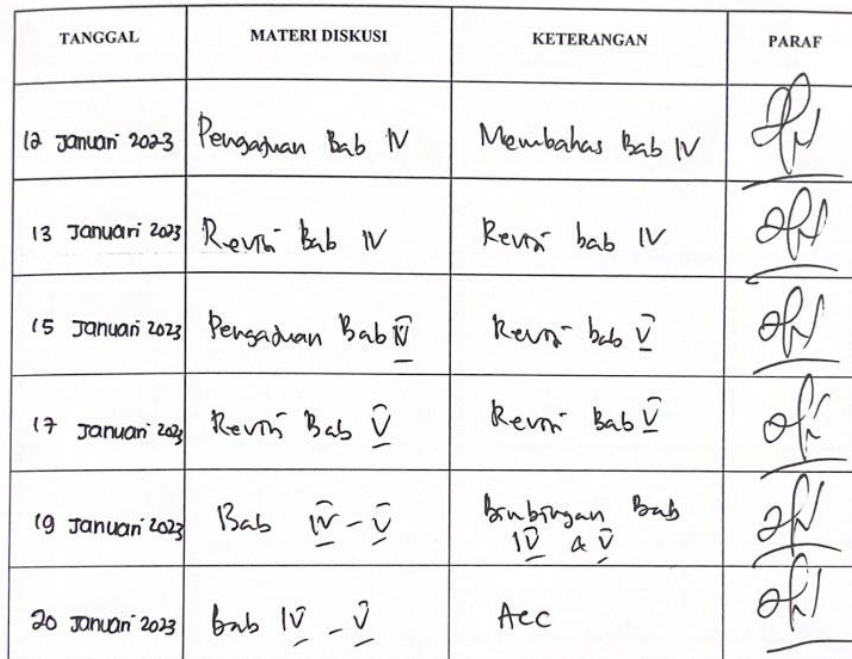 TANGGAL MATERI DISKUSI KETERANGAN PARAF
12 Januari 2023 Pengajuan Bab IV Membahas Bab IV
13 Januari 2023 Revisi Bab IV Revisi bab IV
15 Januari 2023 Pengajuan Bab IV Revisi bab V
17 Januari 2023 Revisi Bab V Revisi Bab V
19 Januari 2023 Bab IV - V Bimbingan Bab
IV & V
20 Januari 2023 bab IV - V Acc